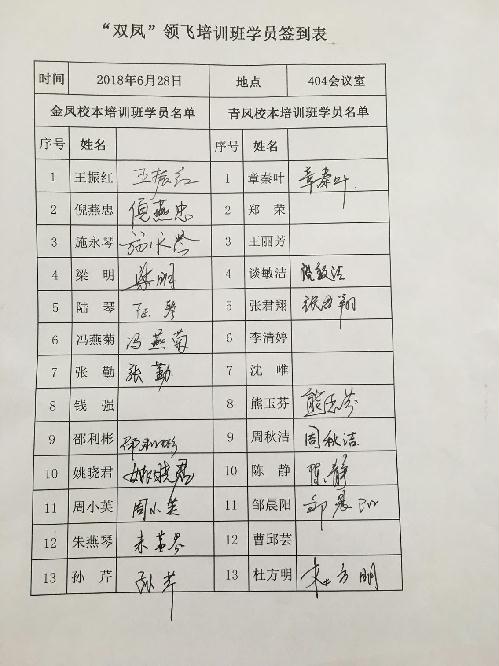 “双凤”领飞培训班学员签到表
时间 2018年6月28日 地点 404会议室
金凤校本培训班学员名单 青凤校本培训班学员名单
序号 姓名 序号 姓名
1 王振红 王振红 1 章秦叶 章秦叶
2 倪燕忠 倪燕忠 2 郑荣
3 施永琴 施永琴 3 王丽芳
4 梁明 梁明 4 谈敏洁 谈敏洁
5 陆琴 陆琴 5 张君翔 张君翔
6 冯燕菊 冯燕菊 6 李清婷
7 张勤 张勤 7 沈唯
8 钱强 8 熊玉芬 熊玉芬
9 邵利彬 邵利彬 9 周秋洁 周秋洁
10 姚晓君 姚晓君 10 陈静 陈静
11 周小英 周小英 11 邹晨阳 邹晨阳
12 朱燕琴 朱燕琴 12 曹邱芸
13 孙芹 孙芹 13 杜方明 杜方明